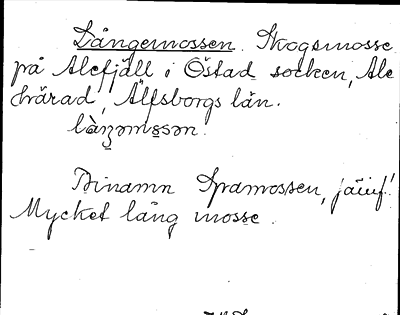 Långemossen. Skogsmosse
på Alefjäll i Östad socken, Ale
härad, Älfsborgs län.
Binamn Spamossen, jämf.!
Mycket lång mosse.